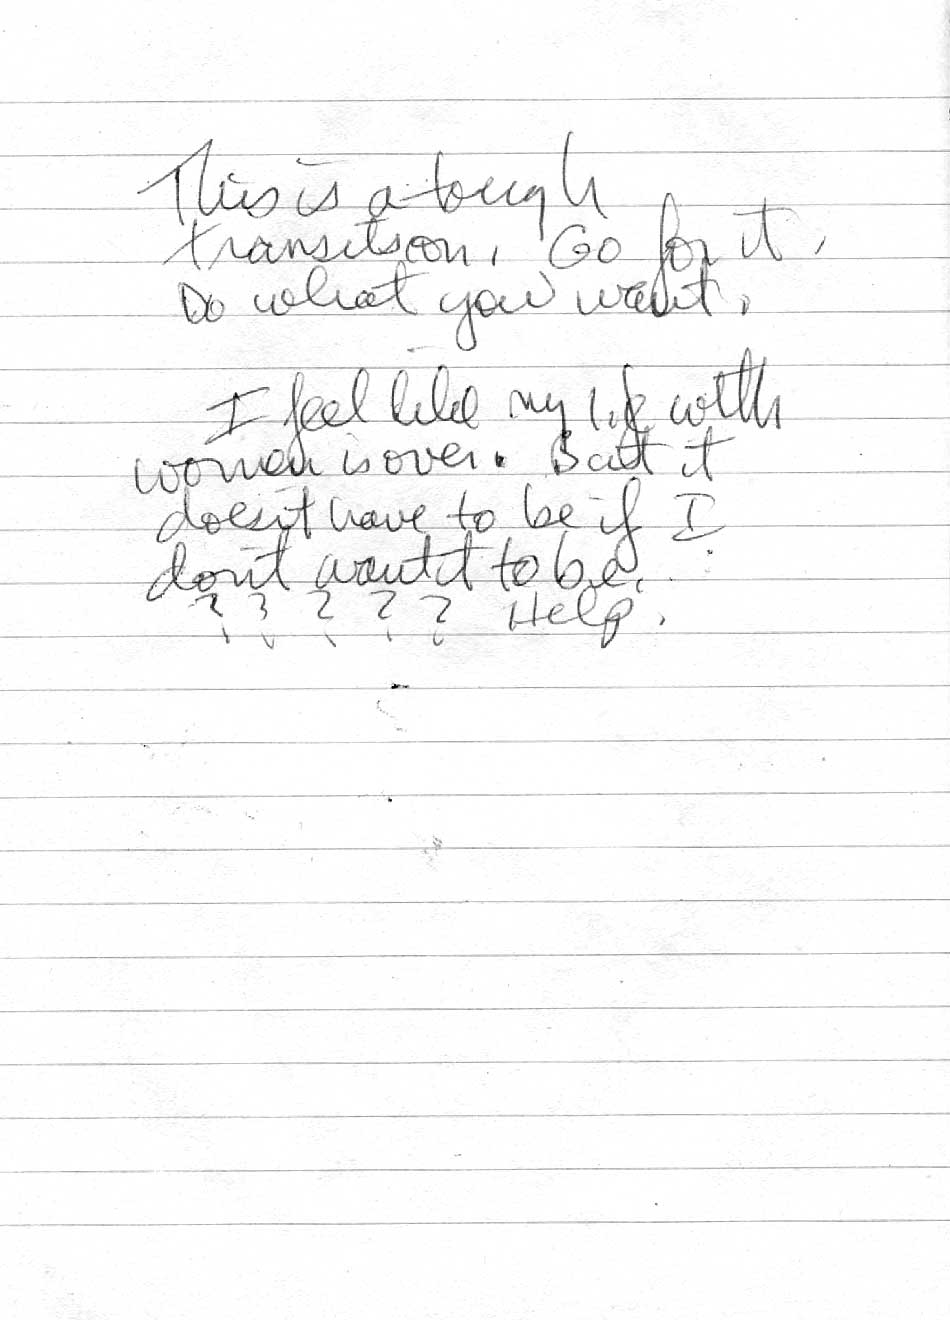 This is a tough
transition. Go for it.
Do what you want.
I feel like my life with
women is over. But it
doesn't have to be if I
don't want it to be.
? ? ? ? ? Help.